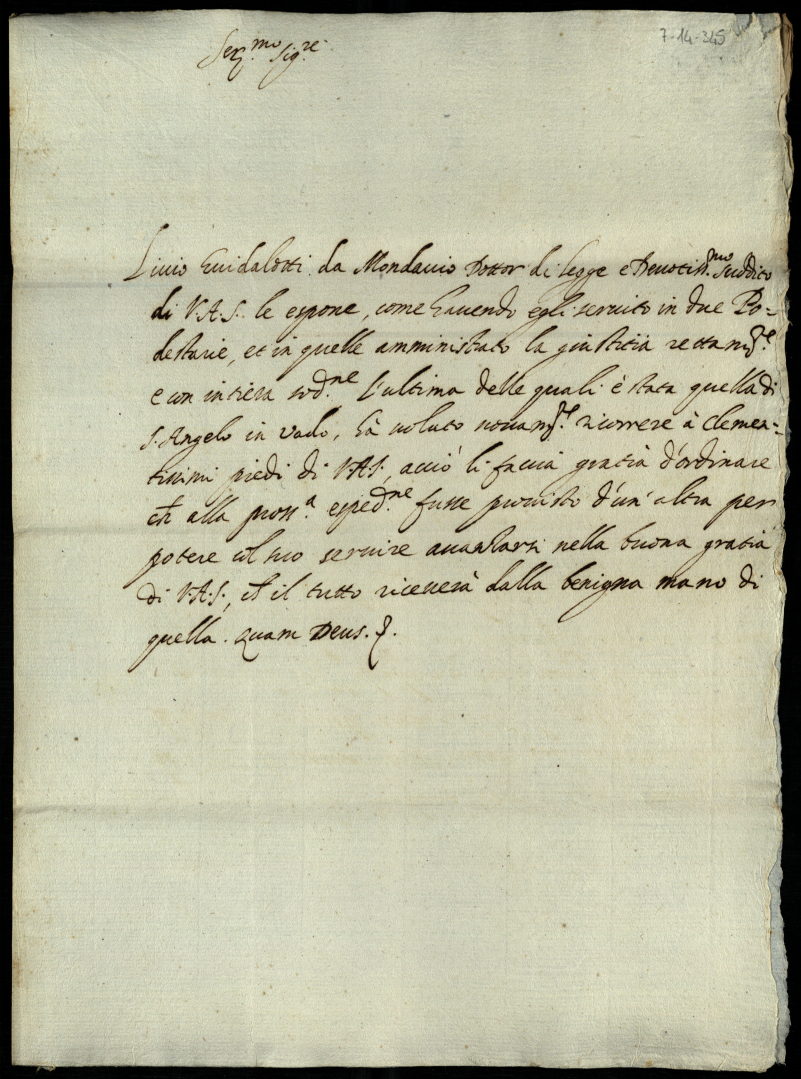 7-14-345
Ser.mo Sig.re
Liuio Guidalotti da Mondauio Dottor di legge e Deuotiss.mo suddito
di V.A.S. le espone, come hauendo egli seruito in due Po=
destarie, et in quelle amministrato la giustitia rettam.te
e con intiera sod.ne L'ultima delle quali è stata quella di
S. Angelo in Vado, hà uoluto nouam.te ricorrere à Clemen=
tissimi piedi di V.A.S., acciò li faccia gratia d'ordinare
ch alla pross.a esped.ne fusse prouisto d'un'altra per
potere col suo seruire auanzarsi nella buona gratia
di V.A.S., ch il tutto riceuerà dalla benigna mano di
quella. Quam Deus.